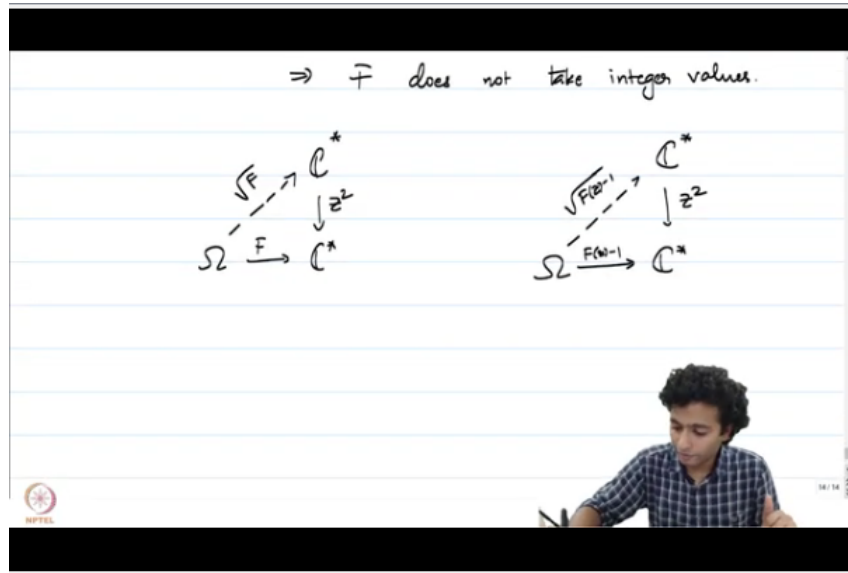 ⇒ F does not take integer values.
ℂ* ℂ*
√F √F(z)-1
↓ z² ↓ z²
Ω F→ ℂ* Ω F(z)-1→ ℂ*
14 / 14
NPTEL